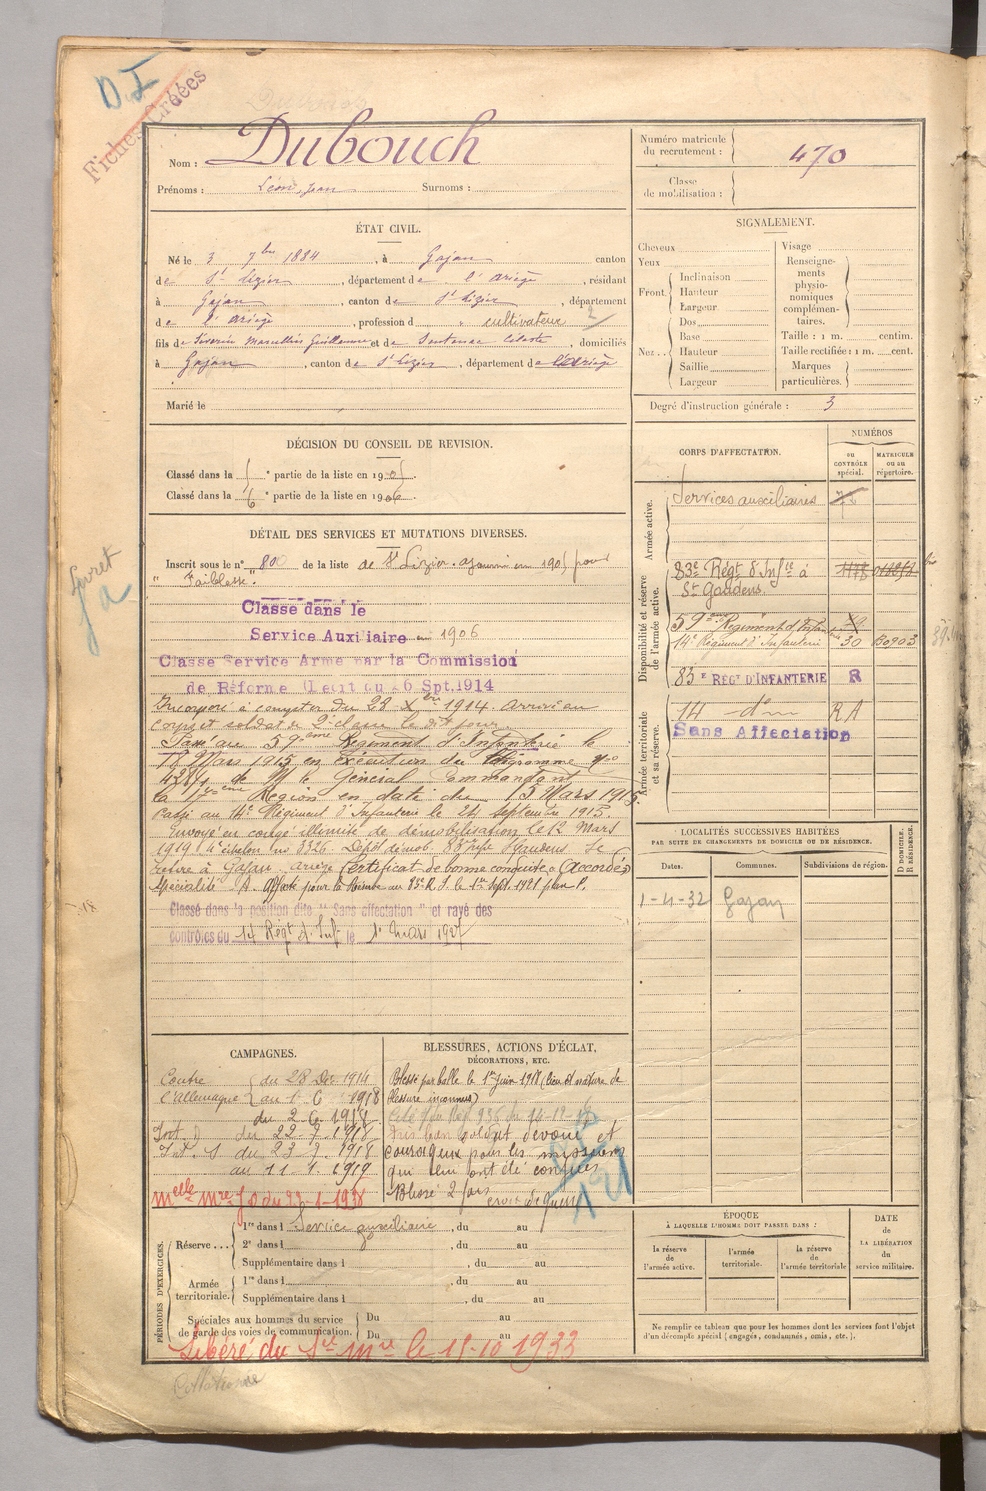 D I
Fiches Créées
Nom : Dubouch
Prénoms : Léon, Jean Surnoms :
Numéro matricule du recrutement : 470
Classe de mobilisation :
ÉTAT CIVIL.
Né le 3 7bre 1884, à Gajan canton
de St Lizier, département de l'ariège, résidant
à Gajan, canton de St Lizier, département
de l'ariège, profession d cultivateur
fils de Séverin Marcellin Guillaume et de Sentenac Céleste, domiciliés
à Gajan, canton de St Lizier, département de l'Ariège
Marié le
SIGNALEMENT.
Cheveux
Yeux
Front. Inclinaison
Hauteur
Largeur
Nez. Dos
Base
Hauteur
Saillie
Largeur
Visage
Renseignements physionomiques complémentaires.
Taille : 1 m. centim.
Taille rectifiée : 1 m. cent.
Marques particulières.
Degré d'instruction générale : 3
DÉCISION DU CONSEIL DE REVISION.
Classé dans la ( e partie de la liste en 190
Classé dans la 6 e partie de la liste en 1906
DÉTAIL DES SERVICES ET MUTATIONS DIVERSES.
Inscrit sous le n° 80 de la liste de St Lizier. ajourné en 1905 pour
" Faiblesse".
Classé dans le
Service Auxiliaire en 1906
Classé Service Armé par la Commission
de Réforme (Décret du 26 Spt. 1914
Incorporé à compter du 28 Xbre 1914. arrivé au
corps et soldat de 2e classe le dit jour.
Passé au 59ème Régiment d'Infanterie le
18 Mars 1915 en exécution du télégramme no
4284 de M le Général Commandant
la 17ème Région en date du 15 Mars 1915.
Passé au 14e Régiment d'Infanterie le 24 septembre 1915.
Envoyé en congé illimité de démobilisation le 12 Mars
1919 4e échelon no 3326 Dépôt démob. 83e inf St Gaudens Se
retire à Gajan ariège Certificat de bonne conduite "Accordé"
Affecté pour la Réserve au 83e R. I. le 1er Sept 1921 plan P.
Classé dans la position dite "Sans affectation" et rayé des
contrôles du 14 Régt d'Inf le 1er mars 1927
livret
CORPS D'AFFECTATION.
NUMÉROS
au CONTRÔLE spécial.
MATRICULE ou au répertoire.
Armée active.
Services auxiliaires
Disponibilité et réserve de l'armée active.
83e Régt d'Infie à
St Gaudens.
59ème Régiment d'Infanterie
14e Régiment d'Infanterie 30
83e RÉGT D'INFANTERIE R
Armée territoriale et sa réserve.
14 do R A
Sans Affectation
LOCALITÉS SUCCESSIVES HABITÉES
PAR SUITE DE CHANGEMENTS DE DOMICILE OU DE RÉSIDENCE.
Dates. Communes. Subdivisions de région. D DOMICILE. R RÉSIDENCE.
1-4-32 Gajan
CAMPAGNES.
Contre l'allemagne du 28 Dec 1914
au 1. 6 1918
du 2 6 1918
Int. du 22 7 1918
Int. S du 23 7 1918
au 11. 1. 1919
BLESSURES, ACTIONS D'ÉCLAT,
DÉCORATIONS, ETC.
Blessé par balle le 1er juin 1918 (lieu et nature de
blessure inconnus)
Cité
très bon soldat dévoué et
courageux pour les missions
qui lui ont été confiées
Blessé 2 fois croix de guerre
Melle Mre J O du 23-1-1938
PÉRIODES D'EXERCICES.
Réserve... 1re dans l Service auxiliaire, du au
2e dans l , du au
Supplémentaire dans l , du au
Armée territoriale. 1re dans l , du au
Supplémentaire dans l , du au
Spéciales aux hommes du service de garde des voies de communication. Du au
Du au
Libéré du Sce Mre le 15-10 1933
ÉPOQUE
À LAQUELLE L'HOMME DOIT PASSER DANS :
la réserve de l'armée active.
l'armée territoriale.
la réserve de l'armée territoriale
DATE de LA LIBÉRATION du service militaire.
Ne remplir ce tableau que pour les hommes dont les services font l'objet
d'un décompte spécial (engagés, condamnés, omis, etc.).